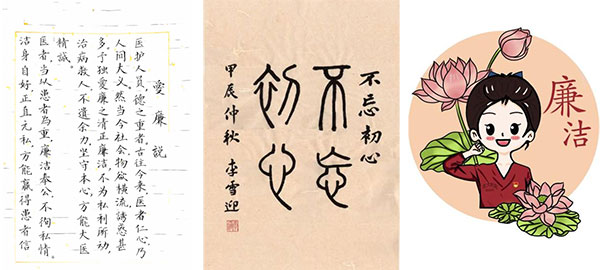 爱廉说
医护人员,德之重者,古往今来,医者仁心,乃
人间大义。然当今社会,物欲横流,诱惑甚
多,予独爱廉之清正廉洁,不为私利所动,
治病救人,不遗余力,坚守本心,方能大医
精诚。
医者,当从患者为重,廉洁奉公,不徇私情。
洁身自好,正直无私,方能赢得患者信
不忘初心
不忘
初心
甲辰仲秋 李雪迎
廉洁